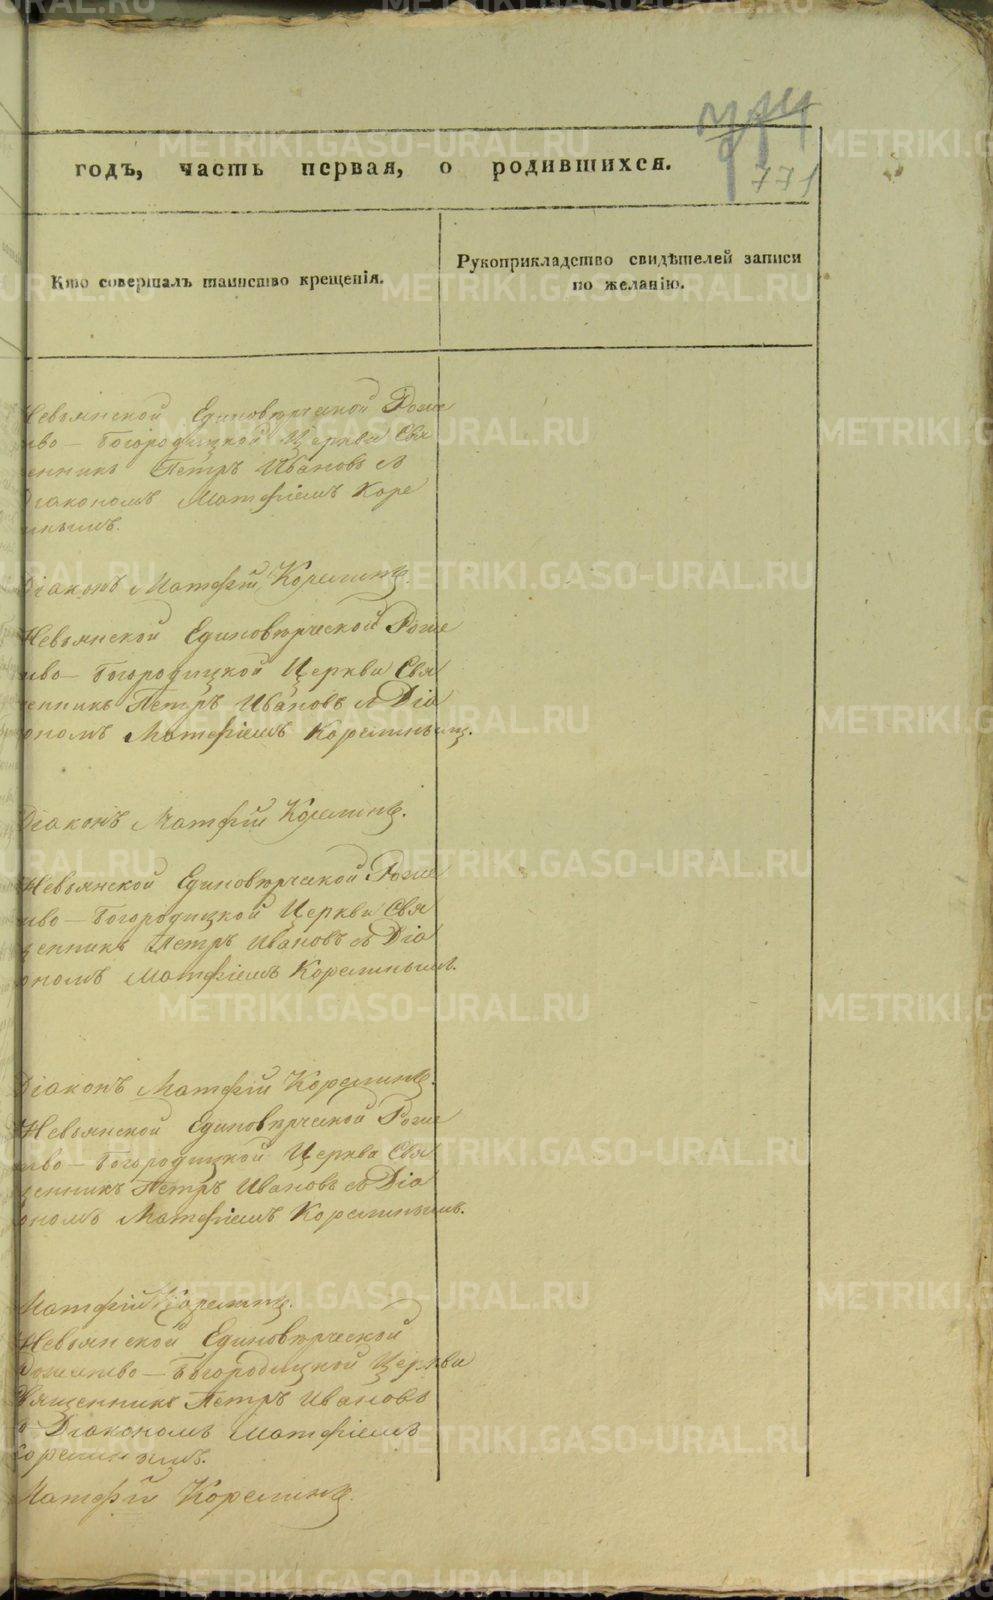 771
годъ, часть первая, о родившихся.
Кто совершалъ таинство крещенія.
Рукоприкладство свидѣтелей записи
по желанію.
Невьянской Единовѣрческой Роже
ство-Богородицкой Церкви Свя
щенникъ Петръ Ивановъ съ
Діакономъ Матфіемъ Коре
линымъ.
Діаконъ Матфій Корелинъ.
Невьянской Единовѣрческой Роже
ство-Богородицкой Церкви Свя
щенникъ Петръ Ивановъ съ Діа
кономъ Матфіемъ Корелинымъ.
Діаконъ Матфій Корелинъ.
Невьянской Единовѣрческой Роже
ство-Богородицкой Церкви Свя
щенникъ Петръ Ивановъ съ Діа
кономъ Матфіемъ Корелинымъ.
Діаконъ Матфій Корелинъ.
Невьянской Единовѣрческой Роже
ство-Богородицкой Церкви Свя
щенникъ Петръ Ивановъ съ Діа
кономъ Матфіемъ Корелинымъ.
Матфій Корелинъ.
Невьянской Единовѣрческой
Рожество-Богородицкой Церкви
Священникъ Петръ Ивановъ
съ Діакономъ Матфіемъ
Корелинымъ.
Матфій Корелинъ.
METRIKI.GASO-URAL.RU